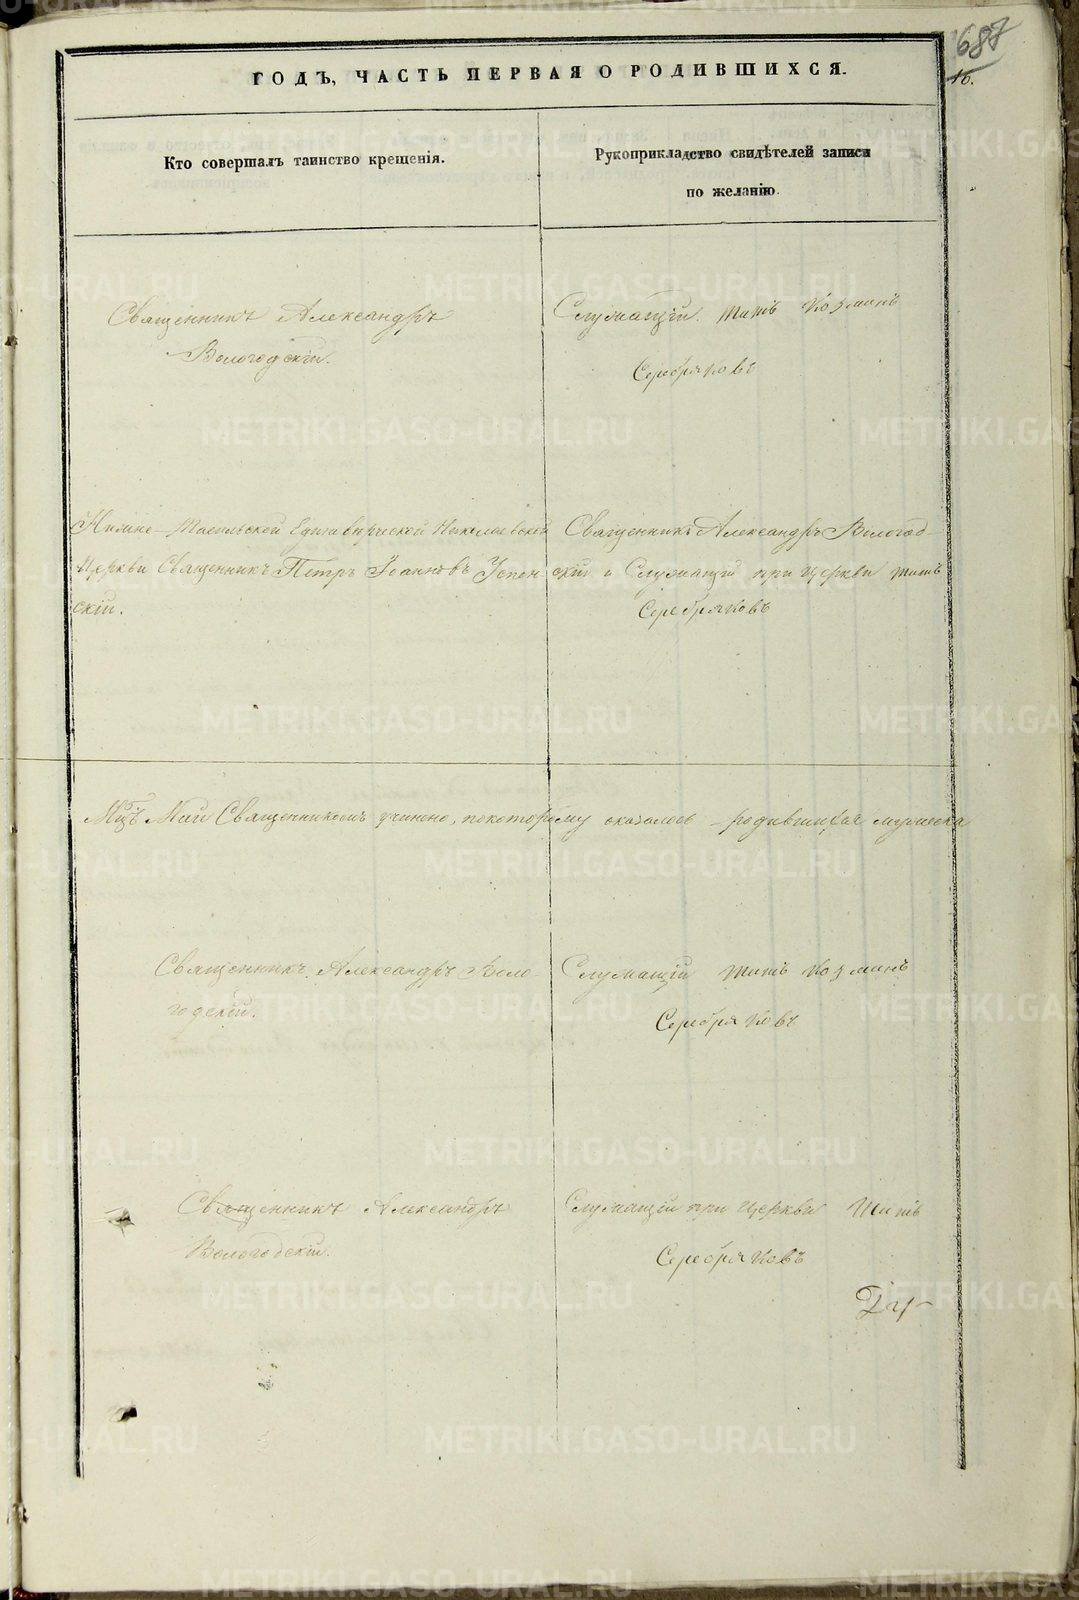 687
16.
ГОДЪ, ЧАСТЬ ПЕРВАЯ О РОДИВШИХСЯ.
Кто совершалъ таинство крещенія.
Рукоприкладство свидѣтелей записи
по желанію.
Священникъ Александръ
Вологодскій.
Служащій Титъ Козминъ
Серебряковъ
Нижне-Тагильской Единовѣрческой Николаевской
Церкви Священникъ Петръ Іоанновъ Успен-
скій.
Священникъ Александръ Вологод-
скій и Служащій при церкви Титъ
Серебряковъ
Маій Священникомъ учинено, покоторому оказалось родившихся мужеска
Священникъ Александръ Воло-
годскій.
Служащій Титъ Козминъ
Серебряковъ
Священникъ Александръ
Вологодскій.
Служащій при церкви Титъ
Серебряковъ
METRIKI.GASO-URAL.RU